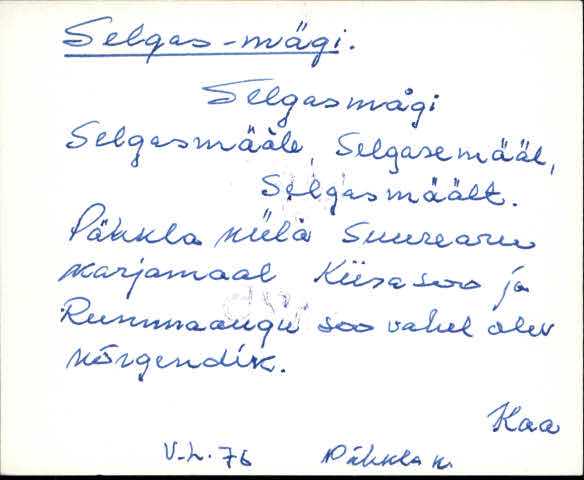 Selgas-mägi.
Selgasmägi
Selgasmääle, Selgasemääl,
Selgasmäält.
Pähkla külä Suurearu
karjamaal Kiisasoo ja
Rummaaugu soo vahel olev
kõrgendik.
Kaa
V-L. 76 Pähkla k.